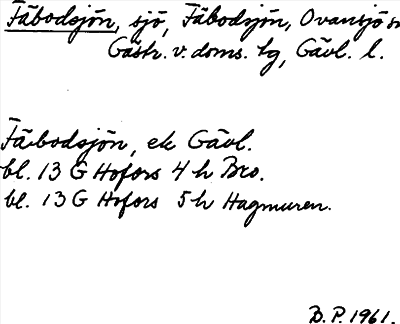 Fäbodsjön, sjö, Fäbodsjön, Ovansjö sn
Gästr. v. doms. lg, Gävl. l.
Fäbodsjön, ek Gävl.
bl. 13 G Hofors 4 h Bro.
bl. 13 G Hofors 5 h Hagmuren.
B. P. 1961.